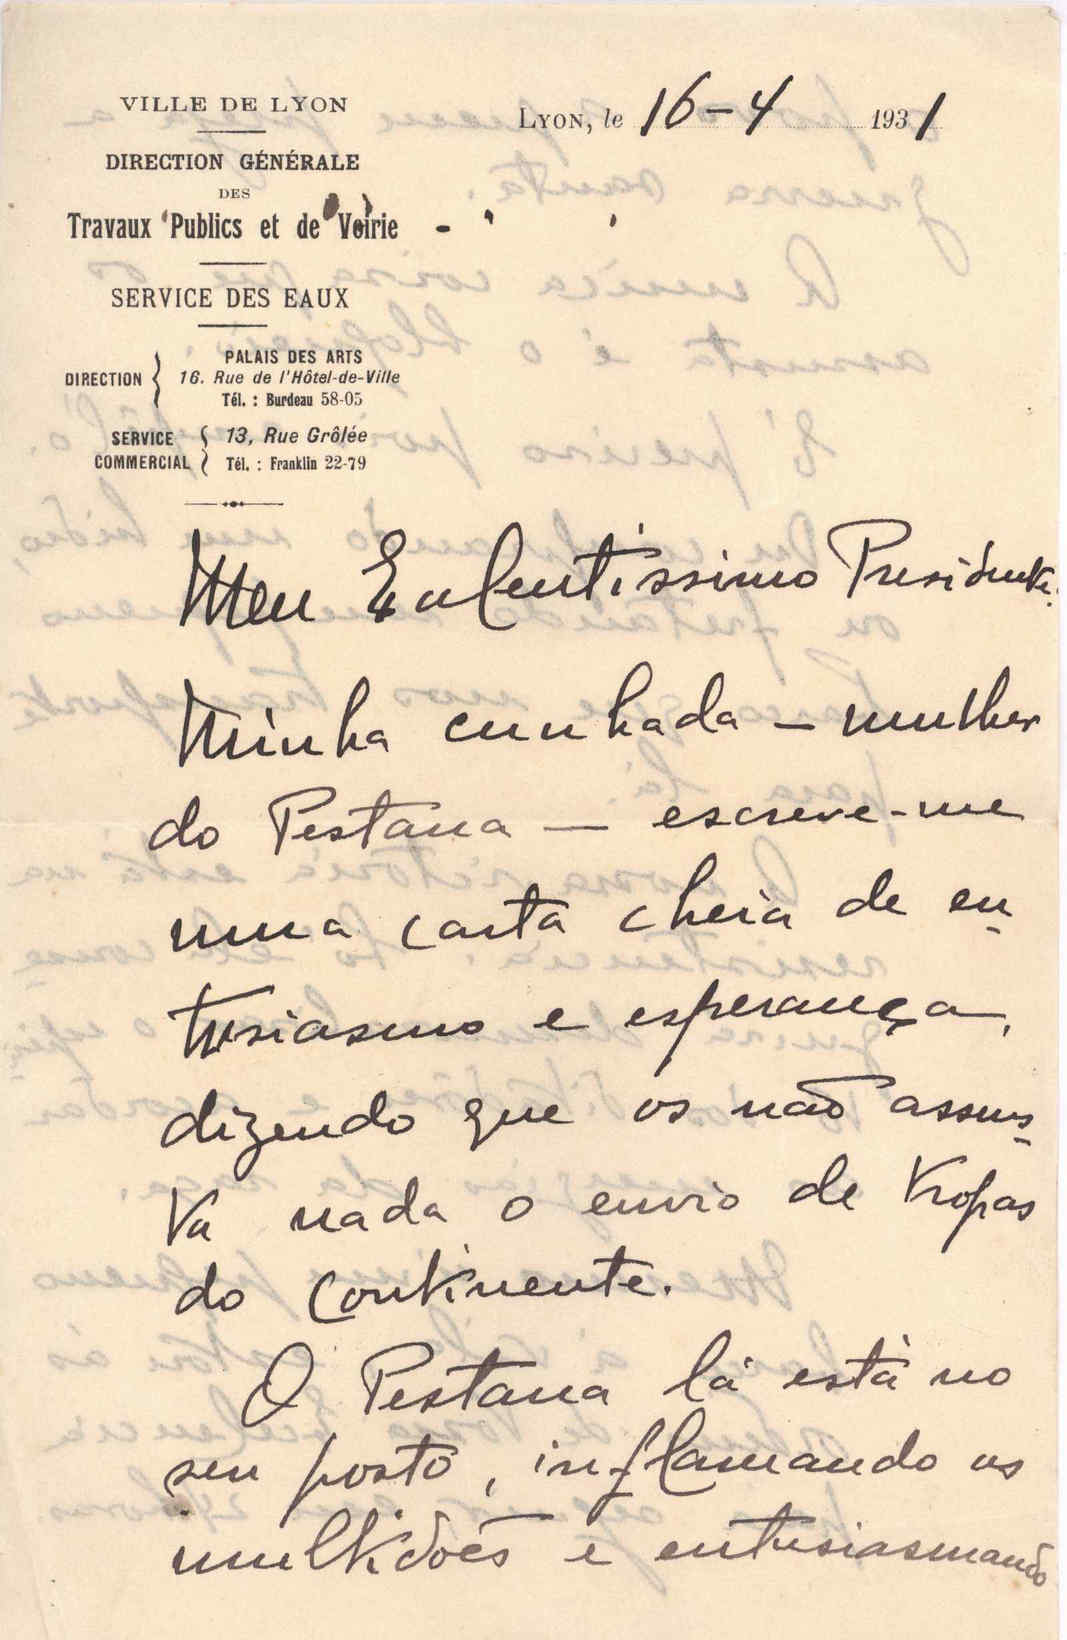 VILLE DE LYON
DIRECTION GÉNÉRALE
DES
Travaux Publics et de Voirie
SERVICE DES EAUX
DIRECTION
PALAIS DES ARTS
16. Rue de l'Hôtel-de-Ville
Tél. : Burdeau 58-05
SERVICE COMMERCIAL
13, Rue Grôlée
Tél. : Franklin 22-79
LYON, le 16-4 1931
Meu Exulentissimo Presidente.
Minha cunhada — mulher
do Pestana — escreve-me
uma carta cheia de en-
tusiasmo e esperança,
dizendo que os não assus-
ta nada o envio de tropas
do continente.
O Pestana lá está no
seu posto, inflamando as
multidões e entusiasmando